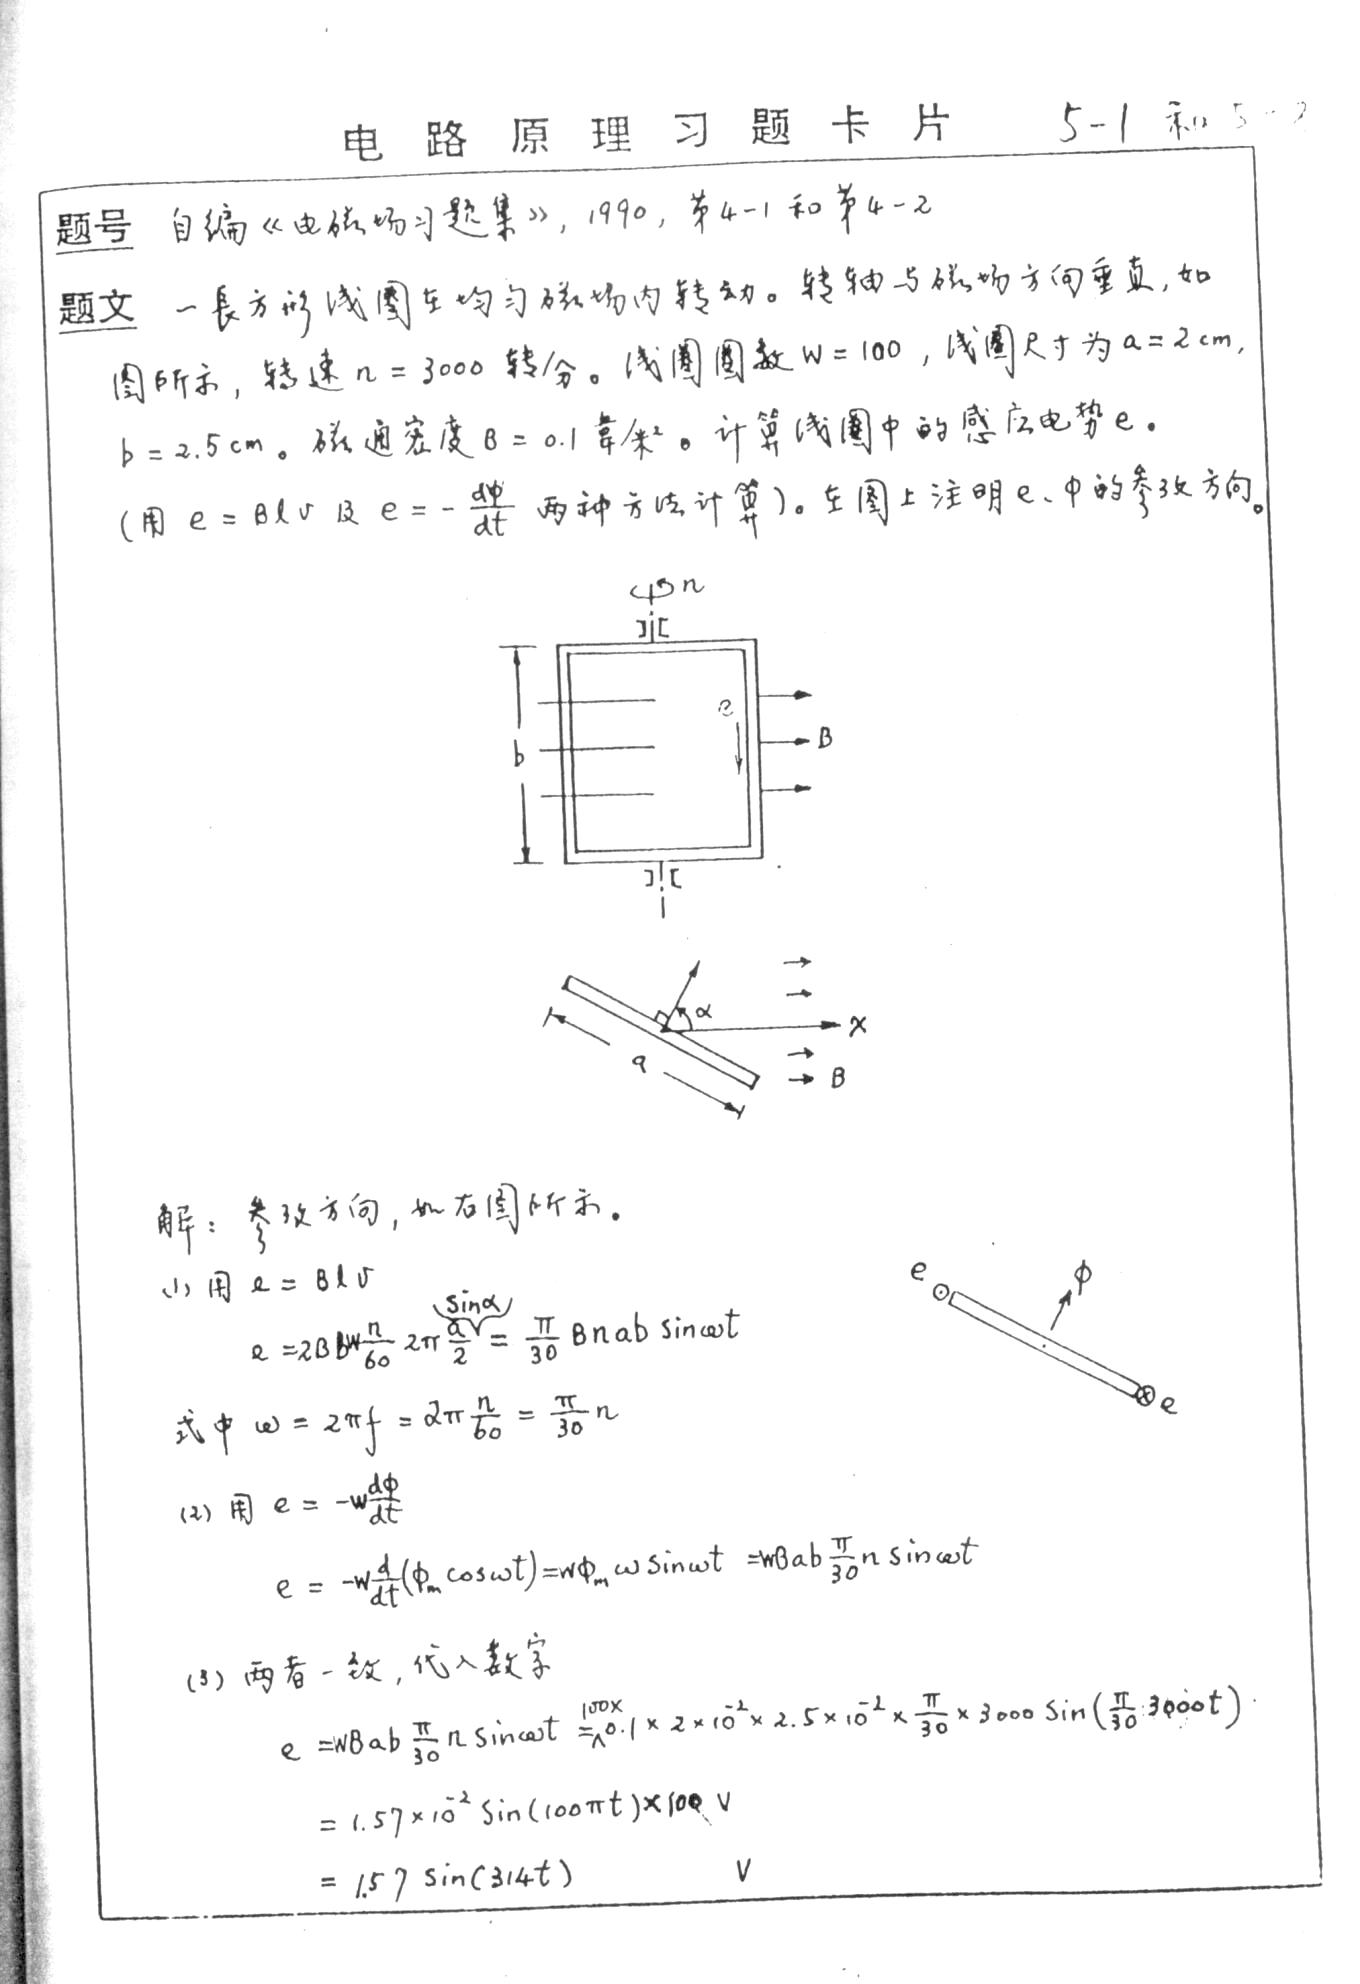 电路原理习题卡片 5-1 和 5-2
题号 自编《电磁场习题集》, 1990, 第4-1和第4-2
题文 一長方形线圈在均匀磁场内转动。转轴与磁场方向垂直,如
图所示,转速 n = 3000 转/分。线圈圈数 W = 100 ,线圈尺寸为 a = 2 cm,
b = 2.5 cm 。磁通密度 B = 0.1 韦/米² 。计算线圈中的感应电势 e 。
(用 e = Blv 及 e = - dφ/dt 两种方法计算)。在图上注明 e、φ的参考方向。
n
e
B
b
α
x
a
B
解: 参考方向,如右图所示。
e
φ
e
(1) 用 e = Blv
e = 2BbW n/60 2π a/2 sinα = π/30 Bnab sinωt
式中 ω = 2πf = 2π n/60 = π/30 n
(2) 用 e = -W dφ/dt
e = -W d/dt (φm cosωt) = Wφm ω sinωt = WBab π/30 n sinωt
(3) 两者一致,代入数字
e = WBab π/30 n sinωt = 100× 0.1 × 2×10⁻² × 2.5×10⁻² × π/30 × 3000 sin(π/30 3000t)
= 1.57×10⁻² sin(100πt)×100 V
= 1.57 sin(314t) V